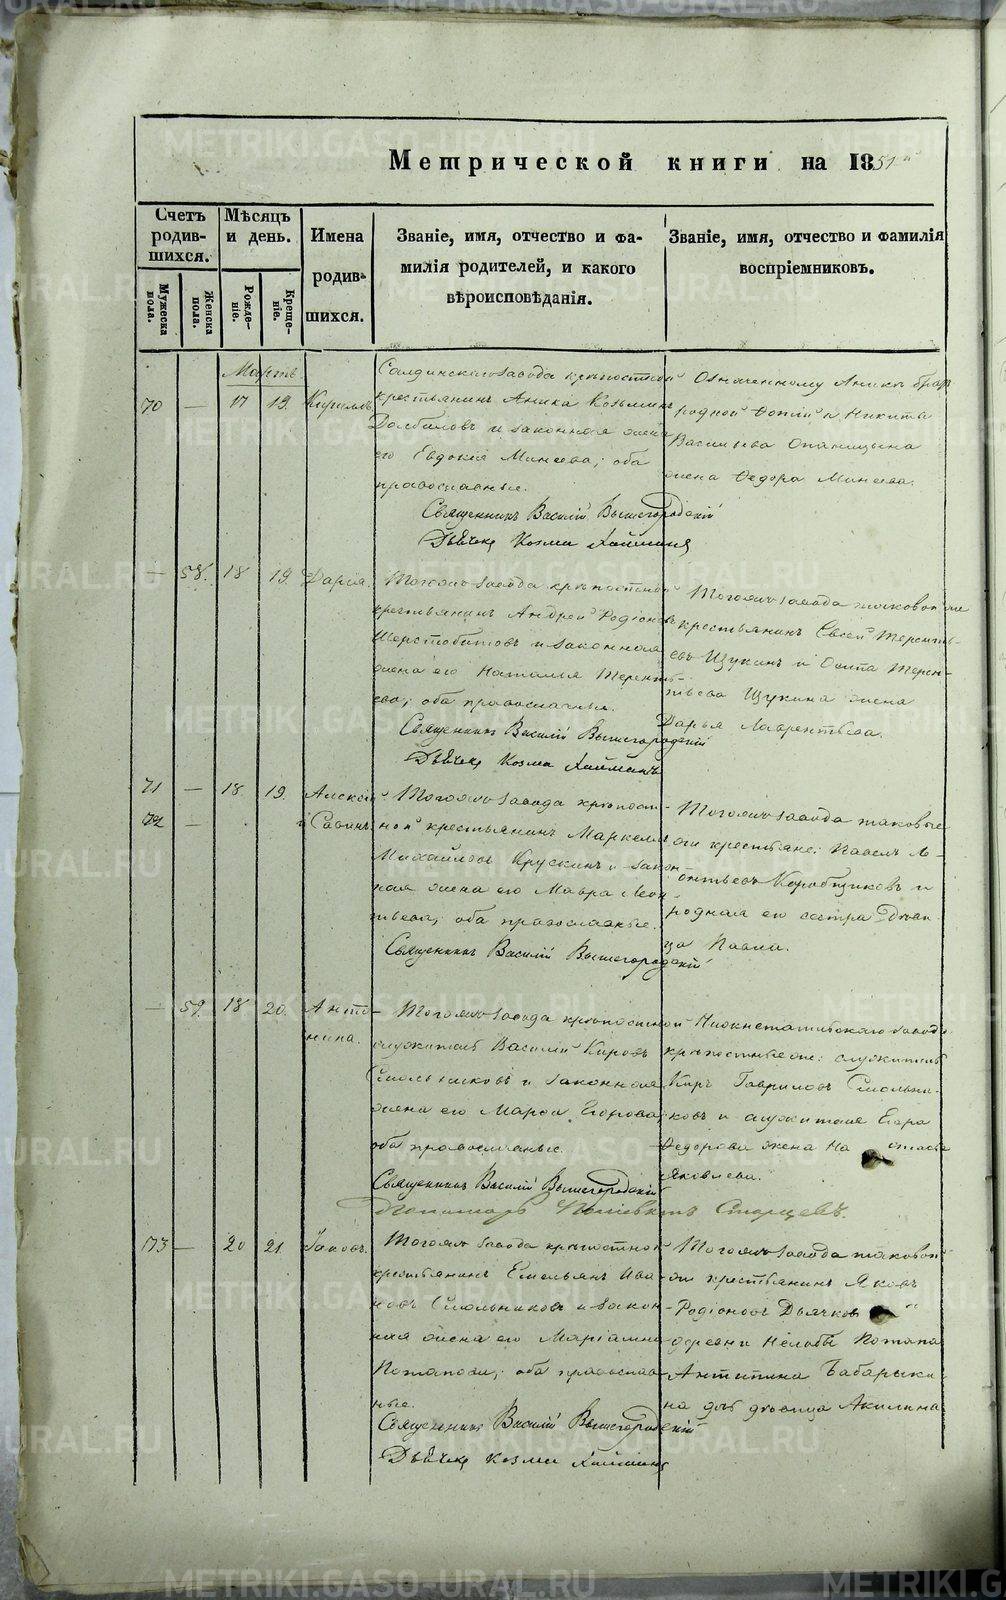 Метрической книги на 1851й
Счетъ родив-шихся.
Мужеска пола.
Женска пола.
Мѣсяцъ и день.
Рожде-ніе.
Креще-ніе.
Имена родив-шихся.
Званіе, имя, отчество и фа-
милія родителей, и какого
вѣроисповѣданія.
Званіе, имя, отчество и фамилія
воспріемниковъ.
Мартъ
70 — 17 19. Кириллъ
Салдинскаго завода крѣпостной
крестьянинъ Аника Козьминъ
Долбиловъ и законная жена
его Евдокія Минеева; оба
православные.
Священникъ Василій Вышегородскій
Дьячекъ Козма
Означенному Аникѣ братъ
родной Фотій и Никита
Васильева жена Ѳедора Минеева.
— 58. 18 19. Дарья.
Тогожъ завода крѣпостной
крестьянинъ Андрей Родіоновъ
Шерстобитовъ и законная
жена его Наталья Теренть-
ева; оба православные.
Священникъ Василій Вышегородскій
Дьячекъ Козма
Тогожъ завода таковой же
крестьянинъ Евсей Теренть-
евъ Щукинъ и Осипа Терен-
тьева Щукина жена
Дарья Лаврентьева.
71 — 18. 19. Алексѣй
72 — и Савинъ
Тогожъ завода крѣпост-
ной крестьянинъ Маркелъ
Михайловъ Крускинъ и закон-
ная жена его Мавра Леон-
тьева; оба православные.
Священникъ Василій Вышегородскій
Тогожъ завода таковые
же крестьяне: Павелъ Ле-
онтьевъ Коробщиковъ и
родная его сестра Дѣви-
ца Павла.
— 59. 18 20. Анто-
нина.
Тогожъ завода крѣпостной
служитель Василій Кировъ
Смольниковъ и законная
жена его Марѳа Егорова;
оба православные.
Священникъ Василій Вышегородскій
Пономарь Старцевъ.
Нижнетагильскаго завода
крѣпостные же: служитель
Киръ Гавриловъ Смольни-
ковъ и служителя Егора
Ѳедорова жена На
Яковлева.
73 — 20 21. Іаковъ.
Тогожъ завода крѣпостной
крестьянинъ Емельянъ Ива-
новъ Смольниковъ и закон-
ная жена его Маріамна
Потапова; оба православ-
ные.
Священникъ Василій Вышегородскій
Дьячекъ Козма
Тогожъ завода таковой
же крестьянинъ Яковъ
Родіоновъ Дьячковъ и
деревни Нелобы Потапа
Антипина Бабарыки-
на дѣвица Акилина
METRIKI.GASO-URAL.RU